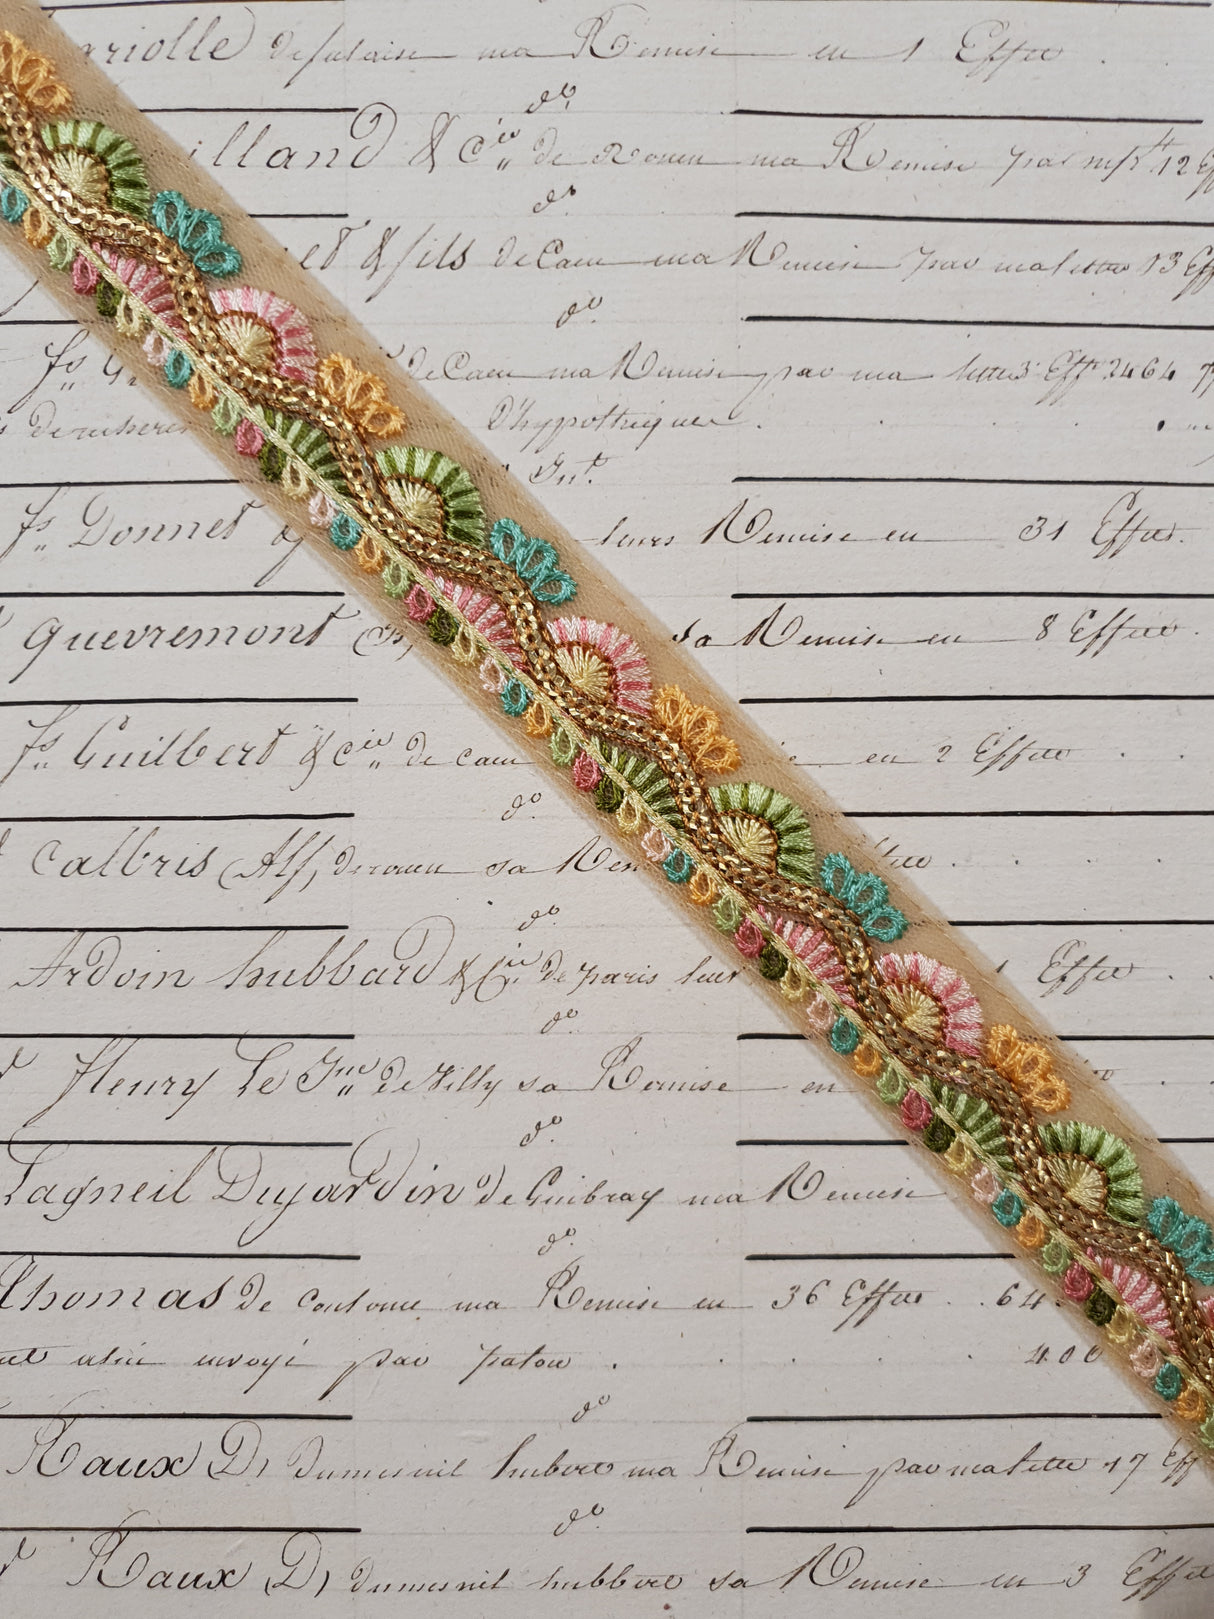 ariolle de falaise ma Remise en 1 Effet
do
illand & Cie de Rouen ma Remise par m/r 12 Ef
do
et & fils de Caen ma Remise par ma lettre 13 Eff
do
fs de Caen ma Remise par ma lettre 3 Effts 2464
D'hypothèques
Int.
fs Donnet leurs Remise en 31 Effets.
Guevremont sa Remise en 8 Effets.
fs Guilbert & Cie de Caen en 2 Effets
do
Calbris (Alf) de rouen sa Rem
do
Ardoin hubbard & Cie de paris leur 1 Effet
do
fleury Le Jne de Villy sa Remise en
do
Lagneil Dujardin de Guibray ma Remise
do
Thomas de Coutance ma Remise en 36 Effets 64
envoyé par 400
do
Raux D, dumesnil hubert ma Remise par ma lettre 17 Eff
do
Raux D, dumesnil hubbert sa Remise en 3 Effets